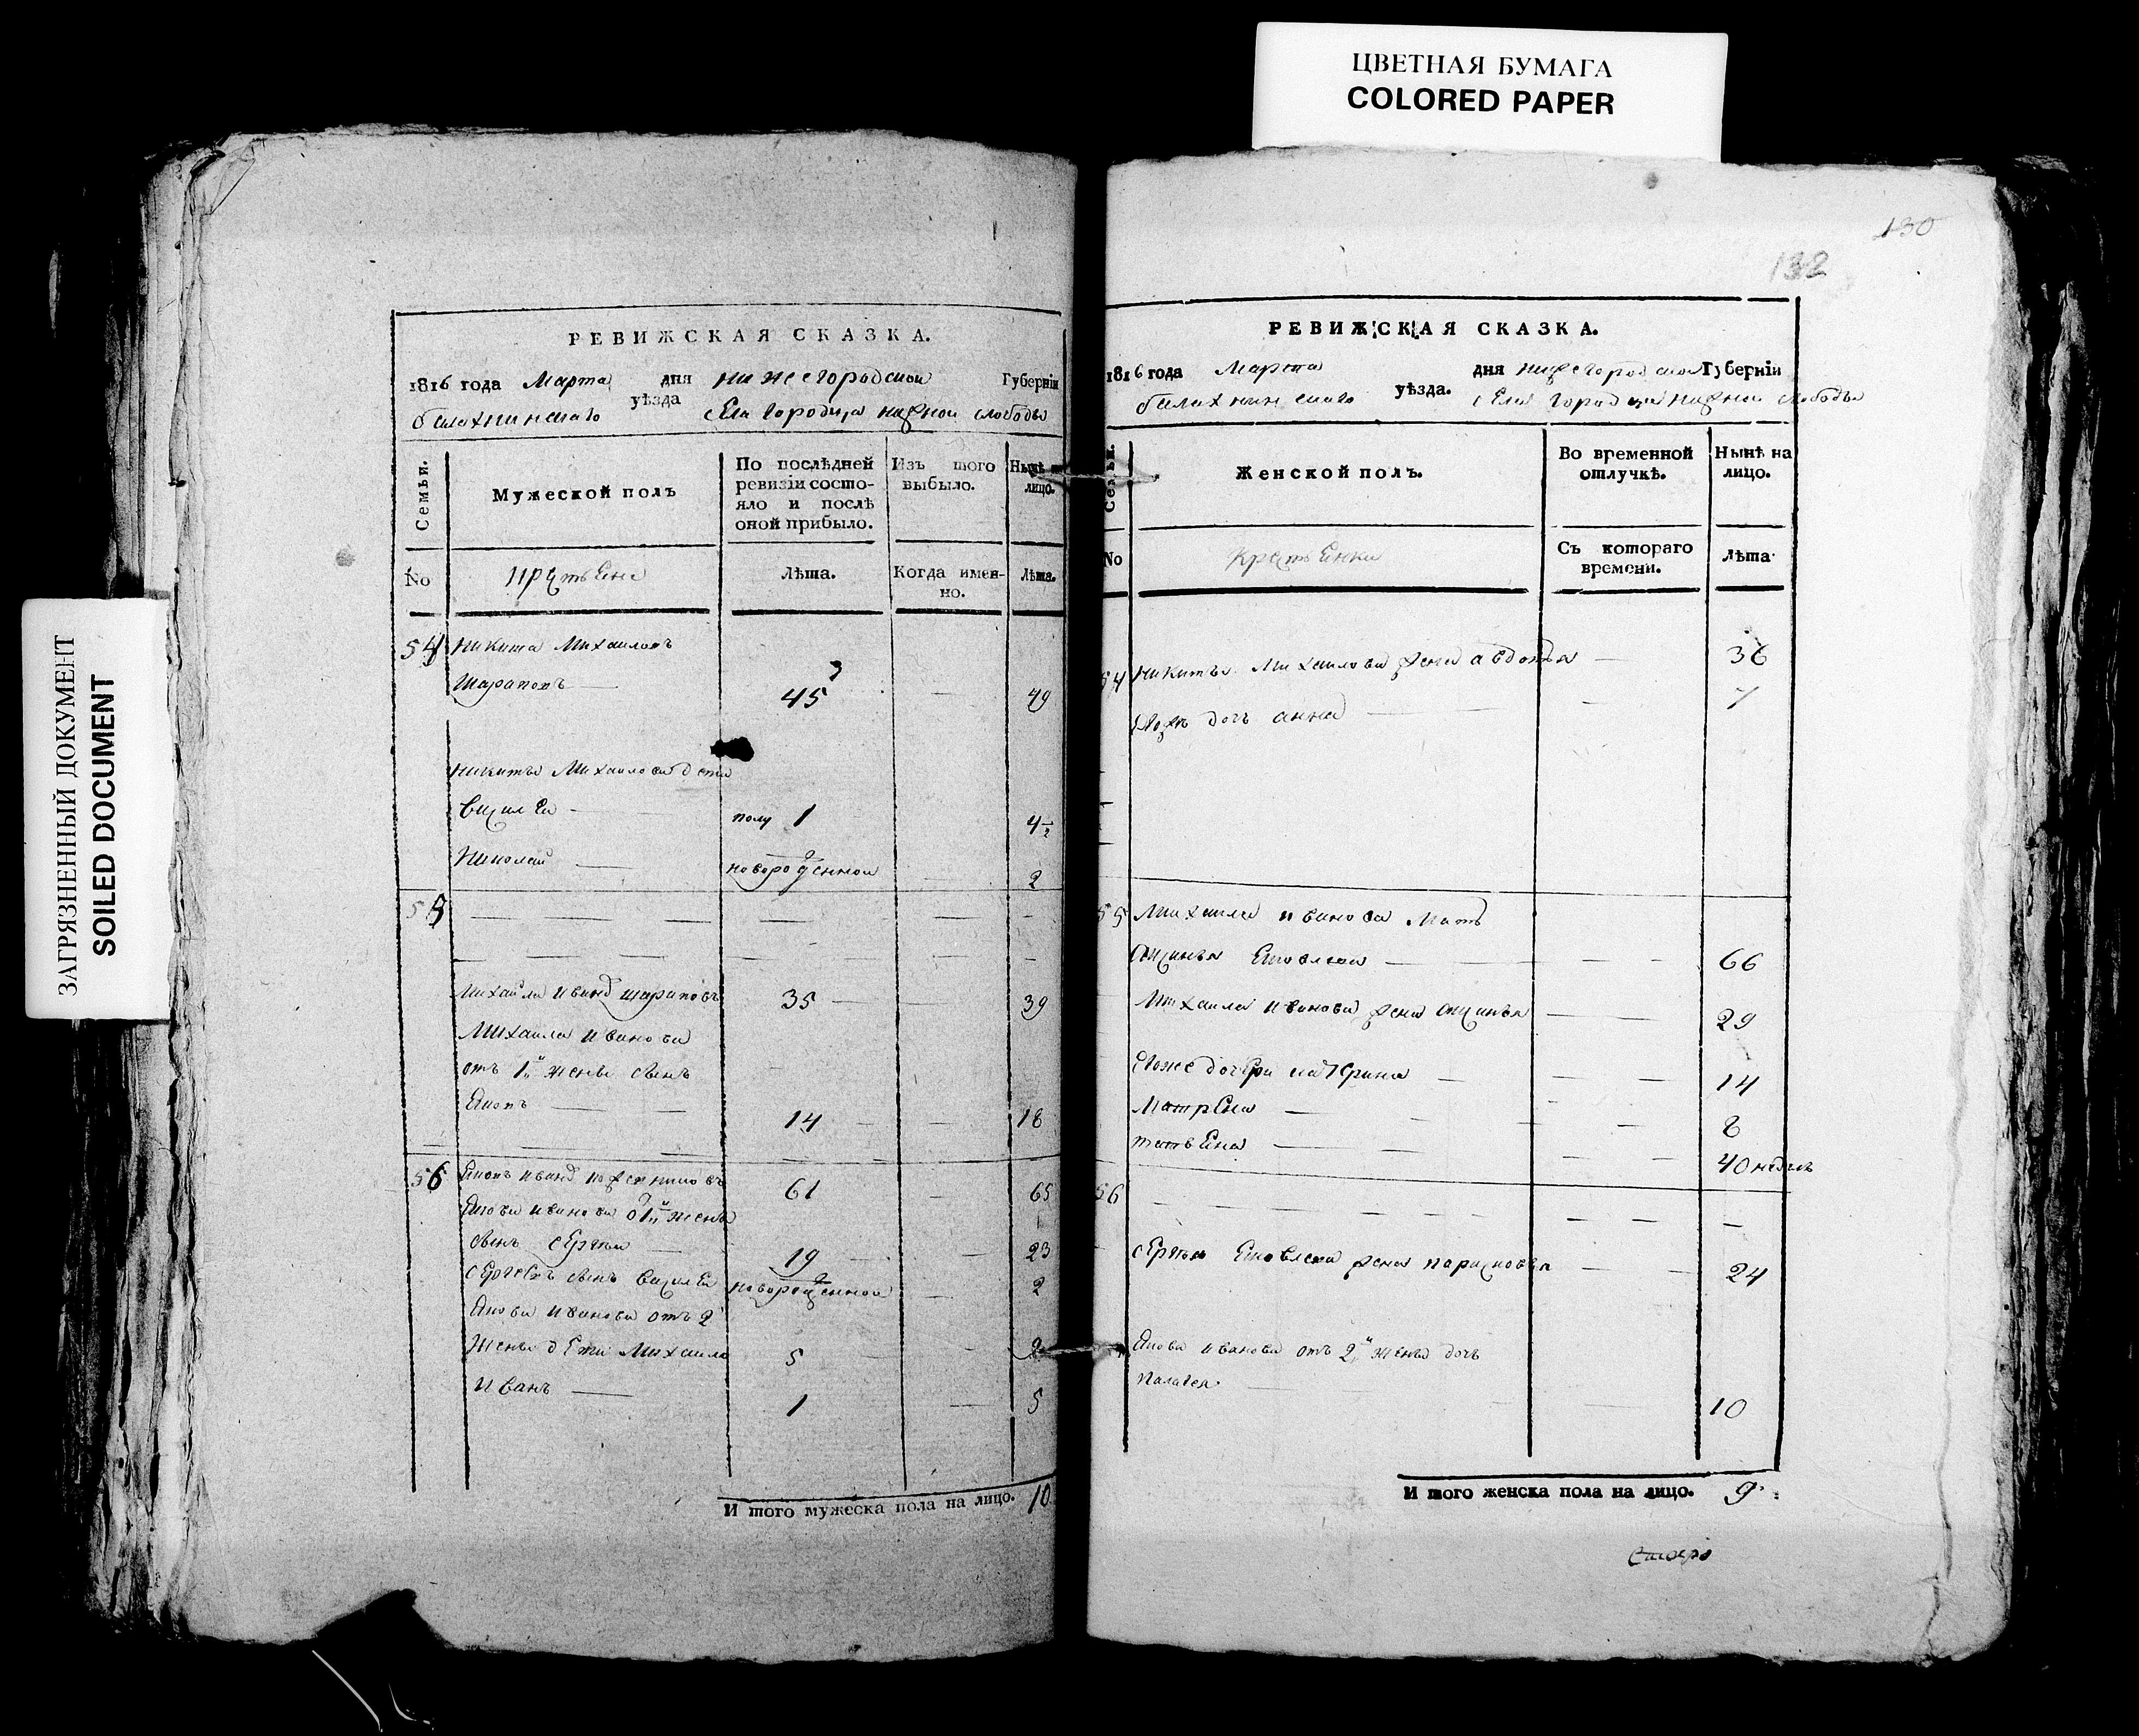 ЦВЕТНАЯ БУМАГА
COLORED PAPER
ЗАГРЯЗНЕННЫЙ ДОКУМЕНТ
SOILED DOCUMENT
130
132
РЕВИЖСКАЯ СКАЗКА.
1816 года Марта дня нижегородской Губерніи
балахнинскаго уѣзда села городца нижней слободы
Семьи.
Мужеской полъ
По послѣдней ревизіи состо-
яло и послѣ оной прибыло.
Изъ того выбыло.
Нынѣ на лицо.
No
крестьяне
Лѣта.
Когда имен-
но.
Лѣта.
54 Никита Михаиловъ
Шараповъ 45 49
Никиты Михаилова дети
Василей полу 1 4½
Николай новорожденной 2
55
Михайла иванъ шараповъ 35 39
Михаила иванова
отъ 1й жены сынъ
Яковъ 14 18
56 Яковъ иванъ 61 65
Якова иванова о 1й жены
сынъ сергѣй 19 23
сергеевъ сынъ василей новорожденной 2
Якова иванова отъ 2
жены дети Михаила 5
иванъ 1 5
И того мужеска пола на лицо. 10
РЕВИЖСКАЯ СКАЗКА.
1816 года Марта дня нижегородской Губерніи
балахнинскаго уѣзда. села городца нижней слободы
Семьи.
Женской полъ.
Во временной отлучкѣ.
Нынѣ на лицо.
No
крестьянки
Съ котораго времени.
Лѣта
54 Никиты Михаилова жена авдотья 36
дочь анна 7
55 Михаила иванова мать
аксинья Яковлева 66
Михаила иванова жена аксинья 29
ево же дочери катерина 14
Матрена 8
татьяна 40 недель
56
сергѣя Яковлева жена парасковья 24
Якова иванова отъ 2й жены дочь
палагея 10
И того женска пола на лицо. 9